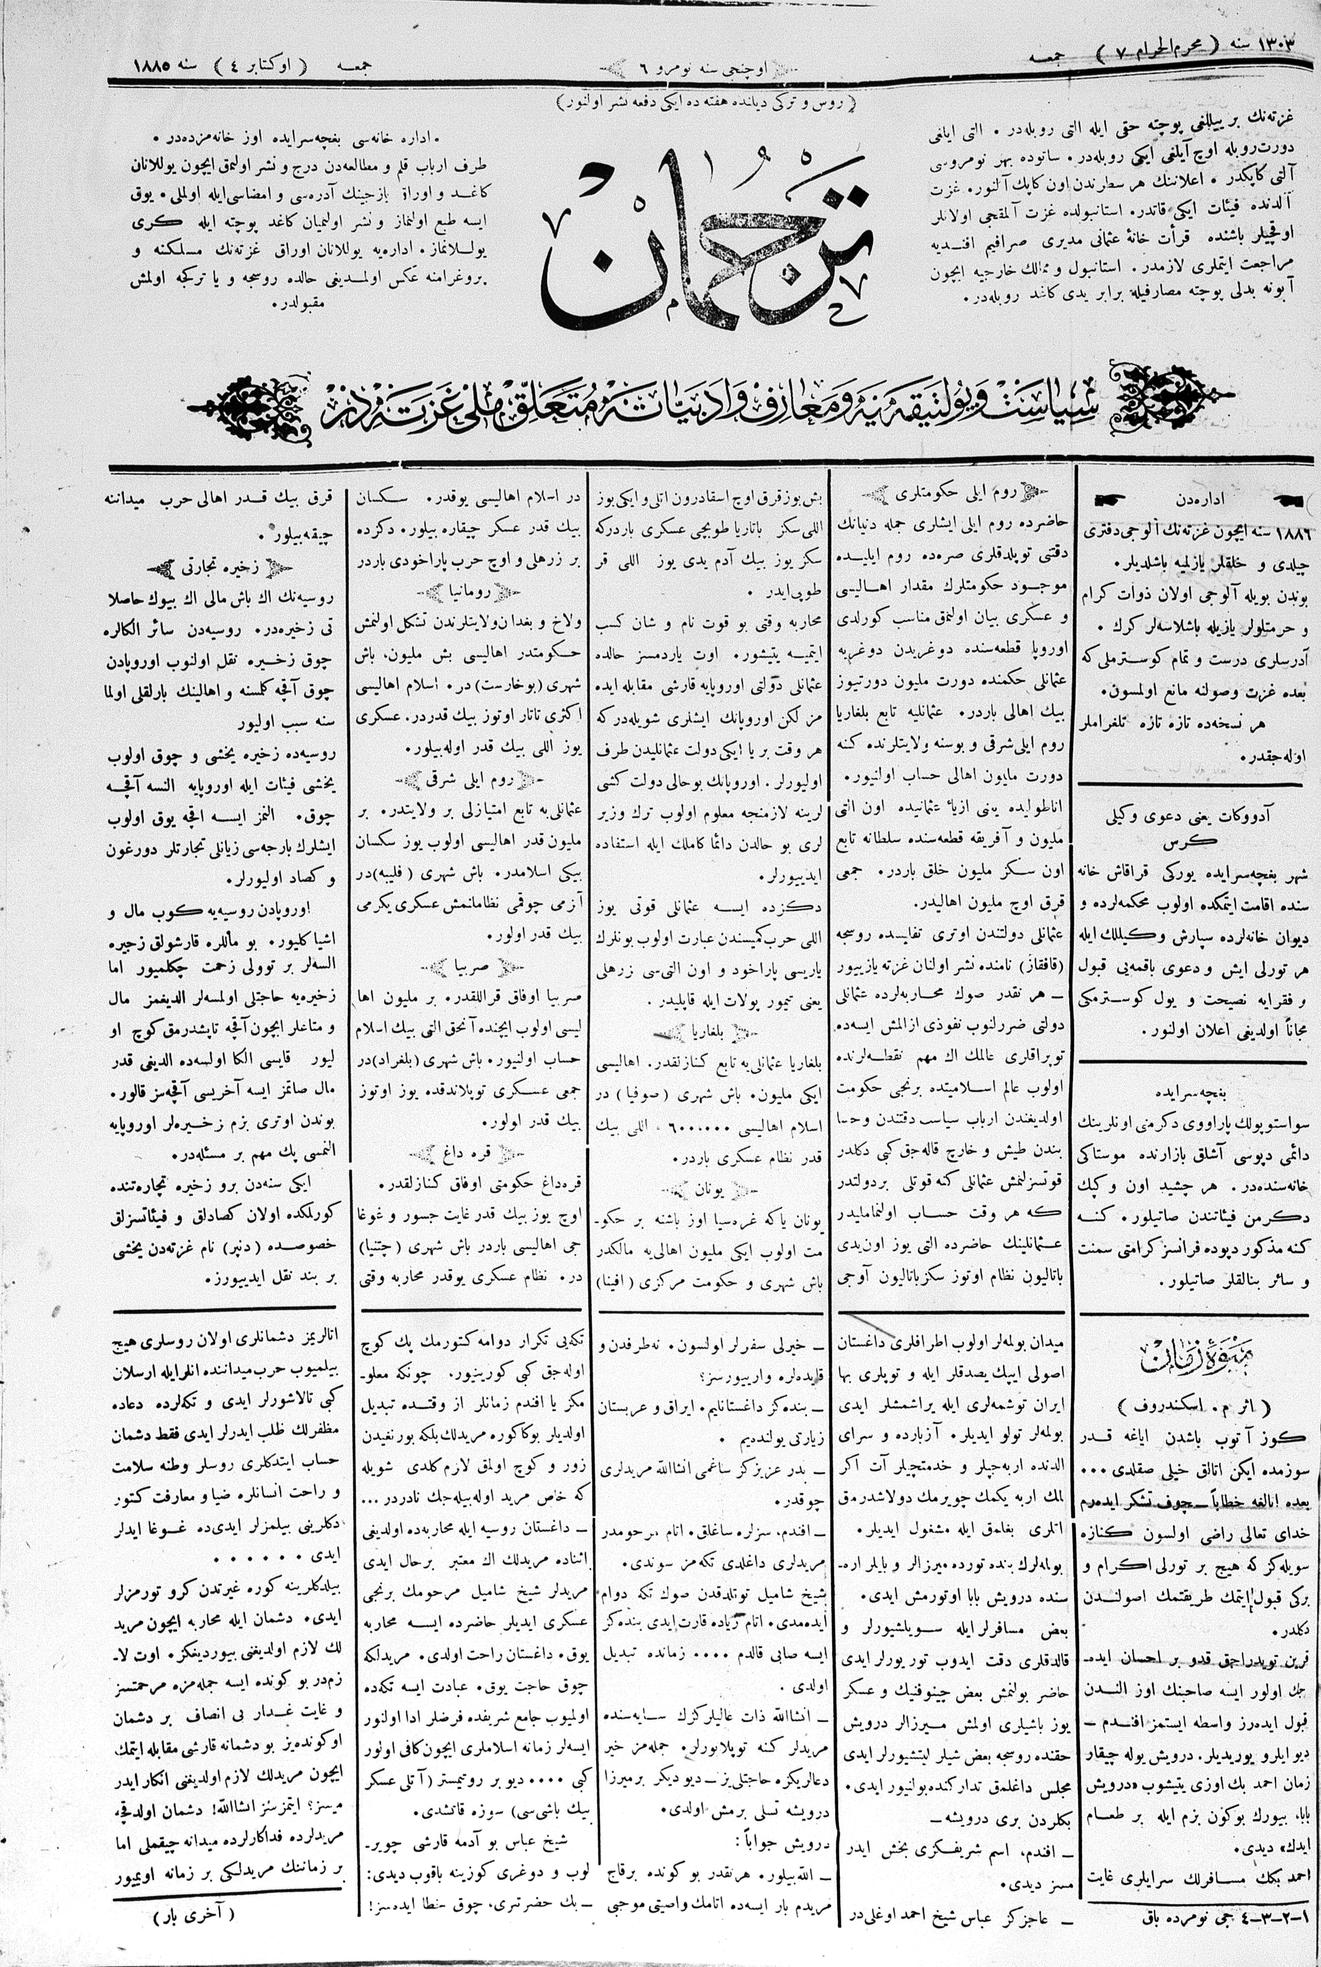 ١٣٠٣ سنه ( محرم الحرام ٧ ) جمعه
اوچنجی سنه نومرو ٦
جمعه ( اوکتابر ٤ ) سنه ١٨٨٥
( روس و ترکی دیلنده هفته ده ایکی دفعه نشر اولنور )
غزته‌نك بر ییللغی پوچته حقی ایله التی روبله‌در . التی ایلغی
دورت روبله اوچ آیلغی ایکی روبله‌در . ساتوده بهر نومروسی
آلتی کاپکدر . اعلاننك هر سطرندن اون کاپك آلنور . غزت
آلدنده فیئات ایکی قاتدر . استانبولده غزت آلمقجی اولانلر
اوقچیلر باشنده قرأت خانهٔ عثمانی مدیری صرافیم افندیه
مراجعت ایتملری لازمدر . استانبول و ممالك خارجیه ایچون
آبونه بدلی پوچته مصارفیله برابر یدی کاغد روبله‌در .
ترجمان
. اداره خانه‌سی بغچه‌سرایده اوز خانه‌مزده‌در .
طرف ارباب قلم و مطالعه‌دن درج و نشر اولنمق ایچون یوللانان
کاغد و اوراق یازجینك آدره‌سی و امضاسی ایله اولملی . یوق
ایسه طبع اولنماز و نشر اولنمیان کاغد پوچته ایله کری
یوللانماز . اداره‌یه یوللانان اوراق غزته‌نك مسلکنه و
پروغرامنه عکس اولمدیغی حالده روسجه و یا ترکجه اولمش
مقبولدر .
سیاست و پولتیقه‌یه و معارف و ادبیاته متعلق ملی غزته‌در
اداره‌دن
١٨٨٦ سنه ایچون غزته‌نك آلوجی دفتری
چیلدی و خلقلر یازلمیه باشلدیلر .
بوندن بویله آلوجی اولان ذوات کرام
و حرمتلولر یازیله باشلاسه‌لر کرك .
آدرسلری درست و تمام کوسترملی که
بعده غزت وصولنه مانع اولمسون .
هر نسخه‌ده تازه تازه تلغراملر
اوله‌جقدر .
آدووکات یعنی دعوی وکیلی
کرس
شهر بغچه‌سرایده یورکی قراقاش خانه
سنده اقامت ایتمکده اولوب محکمه‌لرده و
دیوان خانه‌لرده سپارش وکیللك ایله
هر تورلی ایش و دعوی باقمه‌یی قبول
و فقرایه نصیحت و یول کوسترمکی
مجاناً اولدیغی اعلان اولنور .
بغچه‌سرایده
سواستوپولك پارا‌ووی دکرمنی اونلرینك
دائمی دپوسی آشلق بازارنده موستاکی
خانه‌سنده‌در . هر چشید اون و کپك
دکرمن فیئاتندن صاتیلور . کنه
کنه مذکور دپوده فرانسز کرامتی سمنت
و سائر بنالقلر صاتیلور .
روم ایلی حکومتلری
حاضرده روم ایلی ایشلری جمله دنیانك
دقتنی توپلدقلری صره‌ده روم ایلیده
موجود حکومتلرك مقدار اهالیسی
و عسکری بیان اولنمق مناسب کورلدی
اوروپا قطعه‌سنده دوغریدن دوغریه
عثمانلی حکمنده دورت ملیون دورتیوز
بیك اهالی باردر . عثمانلیه تابع بلغاریا
روم ایلی شرقی و بوسنه ولایتلرنده کنه
دورت ملیون اهالی حساب اولنیور .
اناطولیده یعنی ازیاء عثمانیده اون التی
ملیون و آفریقه قطعه‌سنده سلطانه تابع
اون سکز ملیون خلق باردر . جمعی
قرق اوچ ملیون اهالیدر .
عثمانلی دولتندن اوتری تفلیسده روسجه
(قافقاز) نامنده نشر اولنان غزته یازییور
ـ هر نقدر صوك محاربه‌لرده عثمانلی
دولتی ضررلنوب نفوذی ازالمش ایسه‌ده
توپراقلری عالمك اك مهم نقطه‌لرنده
اولوب عالم اسلامیتده برنجی حکومت
اولدیغندن ارباب سیاست دقتندن و حسا
بندن طیش و خارج قاله‌جق کبی دکلدر
قوتسزلنمش عثمانلی کنه قوتلی بر دولتدر
که هر وقت حساب اولنمالیدر
عثمانلینك حاضرده التی یوز اون یدی
باتالیون نظام اوتوز سکز باتالیون آوجی
بش یوز قرق اوچ اسقادرون اتلی و ایکی یوز
اللی سکز باتاریا طوپجی عسکری باردرکه
سکز یوز بیك آدم یدی یوز اللی قر
طوپی ایدر .
محاربه وقتی بو قوت نام و شان کسب
ایتمیه یتیشور . اوت یاردمسز حالده
عثمانلی دولتی اوروپایه قارشی مقابله ایده
مز لکن اوروپانك ایشلری شویله‌درکه
هر وقت بر یا ایکی دولت عثمانلیدن طرف
اولیورلر . اوروپانك بو حالی دولت کشی
لرینه لازمنجه معلوم اولوب ترك وزیر
لری بو حالدن دائما کاملك ایله استفاده
ایدییورلر .
دکزده ایسه عثمانلی قوتی یوز
اللی حرب کمیسندن عبارت اولوب بونلرك
یاریسی پاراخود و اون التی‌سی زرهلی
یعنی تیمور پولات ایله قاپلیدر .
بلغاریا
بلغاریا عثمانلی‌یه تابع کنازلقدر . اهالیسی
ایکی ملیون . باش شهری (صوفیا) در
اسلام اهالیسی ٦٠٠٠٠٠ ، اللی بیك
قدر نظام عسکری باردر .
یونان
یونان یاکه غره‌سیا اوز باشنه بر حکو-
مت اولوب ایکی ملیون اهالی‌یه مالکدر
باش شهری و حکومت مرکزی (افینا)
در اسلام اهالیسی یوقدر . سکسان
بیك قدر عسکر چیقاره بیلور . دکزده
بر زرهلی و اوچ حرب پاراخودی باردر
رومانیا
ولاخ و بغدان ولایتلرندن تشکل اولنمش
حکومتدر اهالیسی بش ملیون، باش
شهری (بوخارست) در . اسلام اهالیسی
اکثری تاتار اوتوز بیك قدردر . عسکری
یوز اللی بیك قدر اوله بیلور .
روم ایلی شرقی
عثمانلی‌یه تابع امتیازلی بر ولایتدر . بر
ملیون قدر اهالیسی اولوب یوز سکسان
بیکی اسلامدر . باش شهری (فلیبه) در
آزمی چوقمی نظامانمش عسکری یکرمی
بیك قدر اولور .
صربیا
صربیا اوفاق قراللقدر . بر ملیون اها
لیسی اولوب ایچنده آنجق التی بیك اسلام
حساب اولنیور . باش شهری (بلغراد) در
جمعی عسکری توپلاندقده یوز اوتوز
بیك قدر اولور .
قره داغ
قره‌داغ حکومتی اوفاق کنازلقدر .
اوچ یوز بیك قدر غایت جسور و غوغا
جی اهالیسی باردر باش شهری (چتنیا)
در . نظام عسکری یوقدر محاربه وقتی
قرق بیك قدر اهالی حرب میداننه
چیقه بیلور .
زخیره تجارتی
روسیه‌نك اك باش مالی اك بیوك حاصلا
تی زخیره‌در . روسیه‌دن سائر الکالره
چوق زخیره نقل اولنوب اوروپادن
چوق آقچه کلمسنه و اهالینك بارلقلی اولما
سنه سبب اولیور
روسیه‌ده زخیره یخشی و چوق اولوب
یخشی فیئات ایله اوروپایه السه آقچه
چوق . النمز ایسه اقچه یوق اولوب
ایشلرك بارجه‌سی زیانلی تجارتلر دورغون
و کصاد اولیورلر .
اوروپادن روسیه‌یه کوب مال و
اشیا کلیور . بو ماللره قارشولق زخیره
السه‌لر بر توولی زحمت چکلمیور اما
زخیره‌یه حاجتلی اولمسه‌لر الدیغمز مال
و متاعلر ایچون آقچه تاپشدرمق کوچ او
لیور قایسی الکا اولسه‌ده الدیغی قدر
مال صاتمز ایسه آخریسی آقچه‌سز قالور .
بوندن اوتری بزم زخیره‌لر اوروپایه
النمسی پك مهم بر مسئله‌در .
ایکی سنه‌دن برو زخیره تجارتنده
کورلمکده اولان کصادلق و فیئاتسزلق
خصوصده (دنپر) نام غزته‌دن یخشی
بر بند نقل ایدییورز .
میوهٔ زمان
( اثر م . اسکندروف )
کوز آتوب باشدن ایاغه قدر
سوزمده ایکن اتالق خیلی صقلدی ...
بعده اتالغه خطاباً ـ چوق تشکر ایده‌رم
خدای تعالی راضی اولسون کنازه
سویله‌کز که هیچ بر تورلی اکرام و
برکی قبول ایتمك طریقتمك اصولندن
دکلدر .
قرین تویدراجق قدو بر احسان ایده-
جك اولور ایسه صاحبنك اوز الندن
قبول ایده‌رز واسطه ایستمز افندم ـ
دیو ایلرو یوریدیلر . درویش یوله چیقار
زمان احمد بك اوزی یتیشوب «درویش
بابا، بیورك بوکون بزم ایله بر طعام
ایدك» دیدی .
احمد بکك مسافرلك سرایلری غایت
١-٢-٣-٤ جی نومرده باق
میدان بولمه‌لر اولوب اطرافلری داغستان
اصولی ایپك یصدقلر ایله و توپلری بها
ایران توشمه‌لری ایله یراشمشلر ایدی
بولمه‌لر تولو ایدیلر . آزبارده و سرای
الدنده اربه‌جیلر و خدمتچیلر آت اکر
لمك اربه یکمك چویرمك دولاشدرمق
اتلری بغلمق ایله مشغول ایدیلر .
بولمه‌لرك بنده تورده میرزالر و بایلر اره-
سنده درویش بابا اوتورمش ایدی .
بعض مسافرلر ایله سویلشیورلر و
قالدقلری دقت ایدوب توریورلر ایدی
حاضر بولنمش بعض چینوفنیك و عسکر
یوز باشیلری اولمش میرزالر درویش
حقنده روسجه بعض شیلر لیتشیورلر ایدی
مجلس داغلمق تدارکنده بولنیور ایدی .
بکلردن بری درویشه ـ
ـ افندم، اسم شریفکزی بخش ایدر
مسز دیدی .
ـ عاجزکز عباس شیخ احمد اوغلی در
ـ خیرلی سفرلر اولسون . نه‌طرفدن و
قایده‌لره وارییورسز؟
ـ بنده‌کز داغستانلیم . ایراق و عربستان
زیارتی یولنده‌یم .
ـ پدر عزیزکز ساغمی انشاالله مریدلری
چوقدر .
ـ افندم، سزلره ساغلق . اتام مرحومدر
مریدلری داغلدی تکه‌مز سوندی .
شیخ شامیل توتلدقدن صوك تکه دوام
ایده‌مدی . اتام زیاده قارت ایدی بنده‌کز
ایسه صابی قالدم .... زمانده تبدیل
اولدی .
ـ انشاالله ذات عالیلرکزك سایه‌سنده
مریدلر کنه توپلانورلر . جمله‌مز خیر
دعالریکزه حاجتلی‌یز ـ دیو دیکر بر میرزا
درویشه تسلی برمش اولدی .
درویش جواباً :
ـ الله بیلور . هر نقدر بو کونده برقاچ
مریدم بار ایسه‌ده اتامك واصیتی موجبی
تکه‌یی تکرار دوامه کتورمك پك کوچ
اوله‌جق کبی کورینیور . چونکه معلو-
مکز یا افندم زمانلر از وقتده تبدیل
اولدیلر بوکاکوره مریدلك بلکه بورنغیدن
زور و کوچ اولمق لازم کلدی شویله
که خاص مرید اوله بیله‌جك نادردر ...
ـ داغستان روسیه ایله محاربه‌ده اولدیغی
اثناده مریدلك اك معتبر بر حال ایدی
مریدلر شیخ شامیل مرحومك برنجی
عسکری ایدیلر حاضرده ایسه محاربه
یوق . داغستان راحت اولدی . مریدلکه
چوق حاجت یوق . عبادت ایسه تکه‌ده
اولمیوب جامع شریفده فرضلر ادا اولنور
ایسه‌لر زمانه اسلاملری ایچون کافی اولور
کبی .... دیو بر روتمیستر (آتلی عسکر
بیك باشی‌سی) سوزه قاتشدی .
شیخ عباس بو آدمه قارشی چویر-
لوب و دوغری کوزینه باقوب دیدی :
ـ بك حضرتلری، چوق خطا ایده‌سز !
اتالریمز دشمانلری اولان روسلری هیچ
بیلمیوب حرب میداننده انلر ایله ارسلان
کبی تالاشورلر ایدی و تکه‌لرده دعاده
مظفرلك طلب ایدرلر ایدی فقط دشمان
حساب ایتدکلری روسلر وطنه سلامت
و راحت انسانلره ضیا و معارفت کتور
دکلرینی بیلمزلر ایدی‌ده غوغا ایدلر
ایدی ......
بیلدکلرینه کوره غیرتدن کرو تورمزلر
ایدی . دشمان ایله محاربه ایچون مرید
لك لازم اولدیغنی بیوردیغکز . اوت لا-
زم‌در بو کونده ایسه جمله‌مزه مرحمتسز
و غایت غدار بی انصاف بر دشمان
اوکونده‌یز بو دشمانه قارشی مقابله ایتمك
ایچون مریدلك لازم اولدیغنی انکار ایدر
میسز؟ ایتمزسز انشاالله ! دشمان اولدقچه
مریدلرده فداکارلرده میدانه چیقملی اما
بر زماننك مریدلکی بر زمانه اویمیور
( آخری بار )